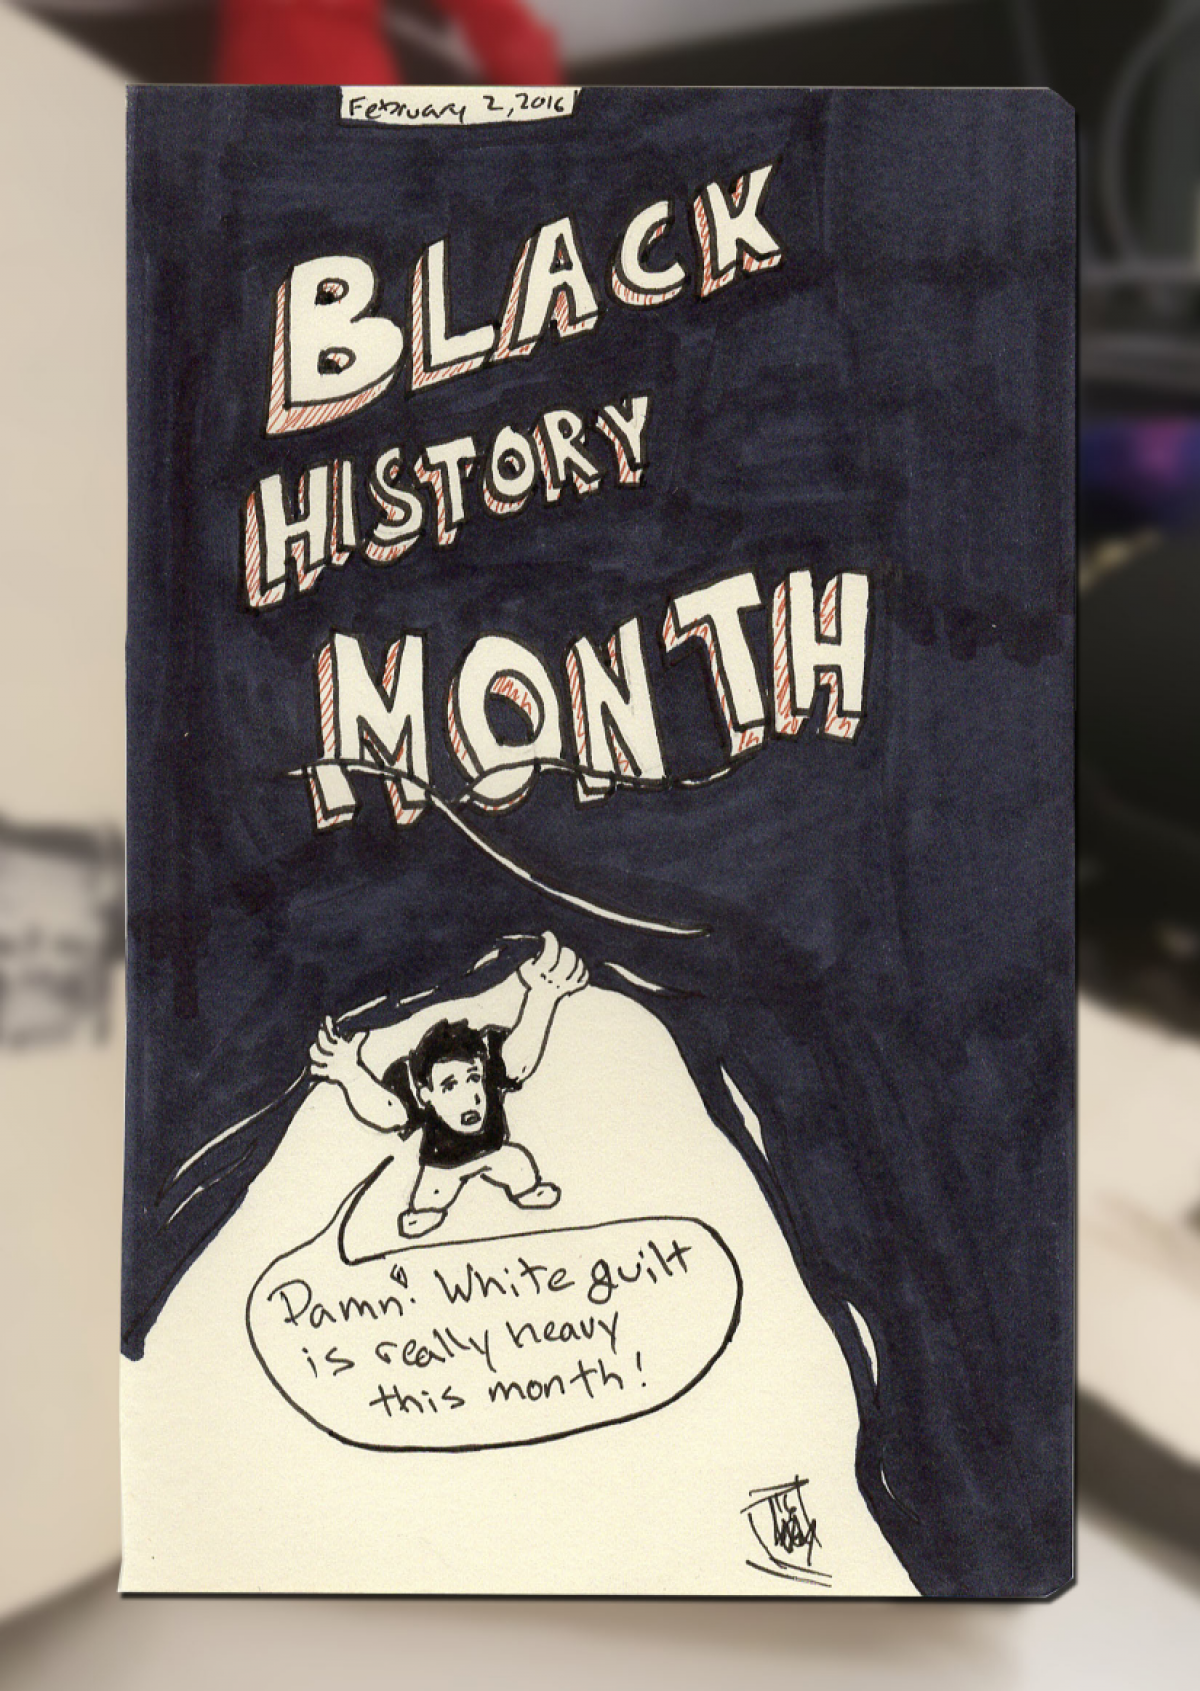 February 2, 2016
BLACK
HISTORY
MONTH
Damn! White guilt
is really heavy
this month!